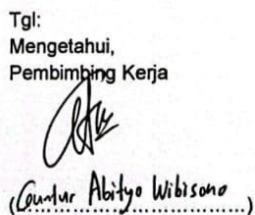 Tgl:
Mengetahui,
Pembimbing Kerja
(Guntur Abityo Wibisono)